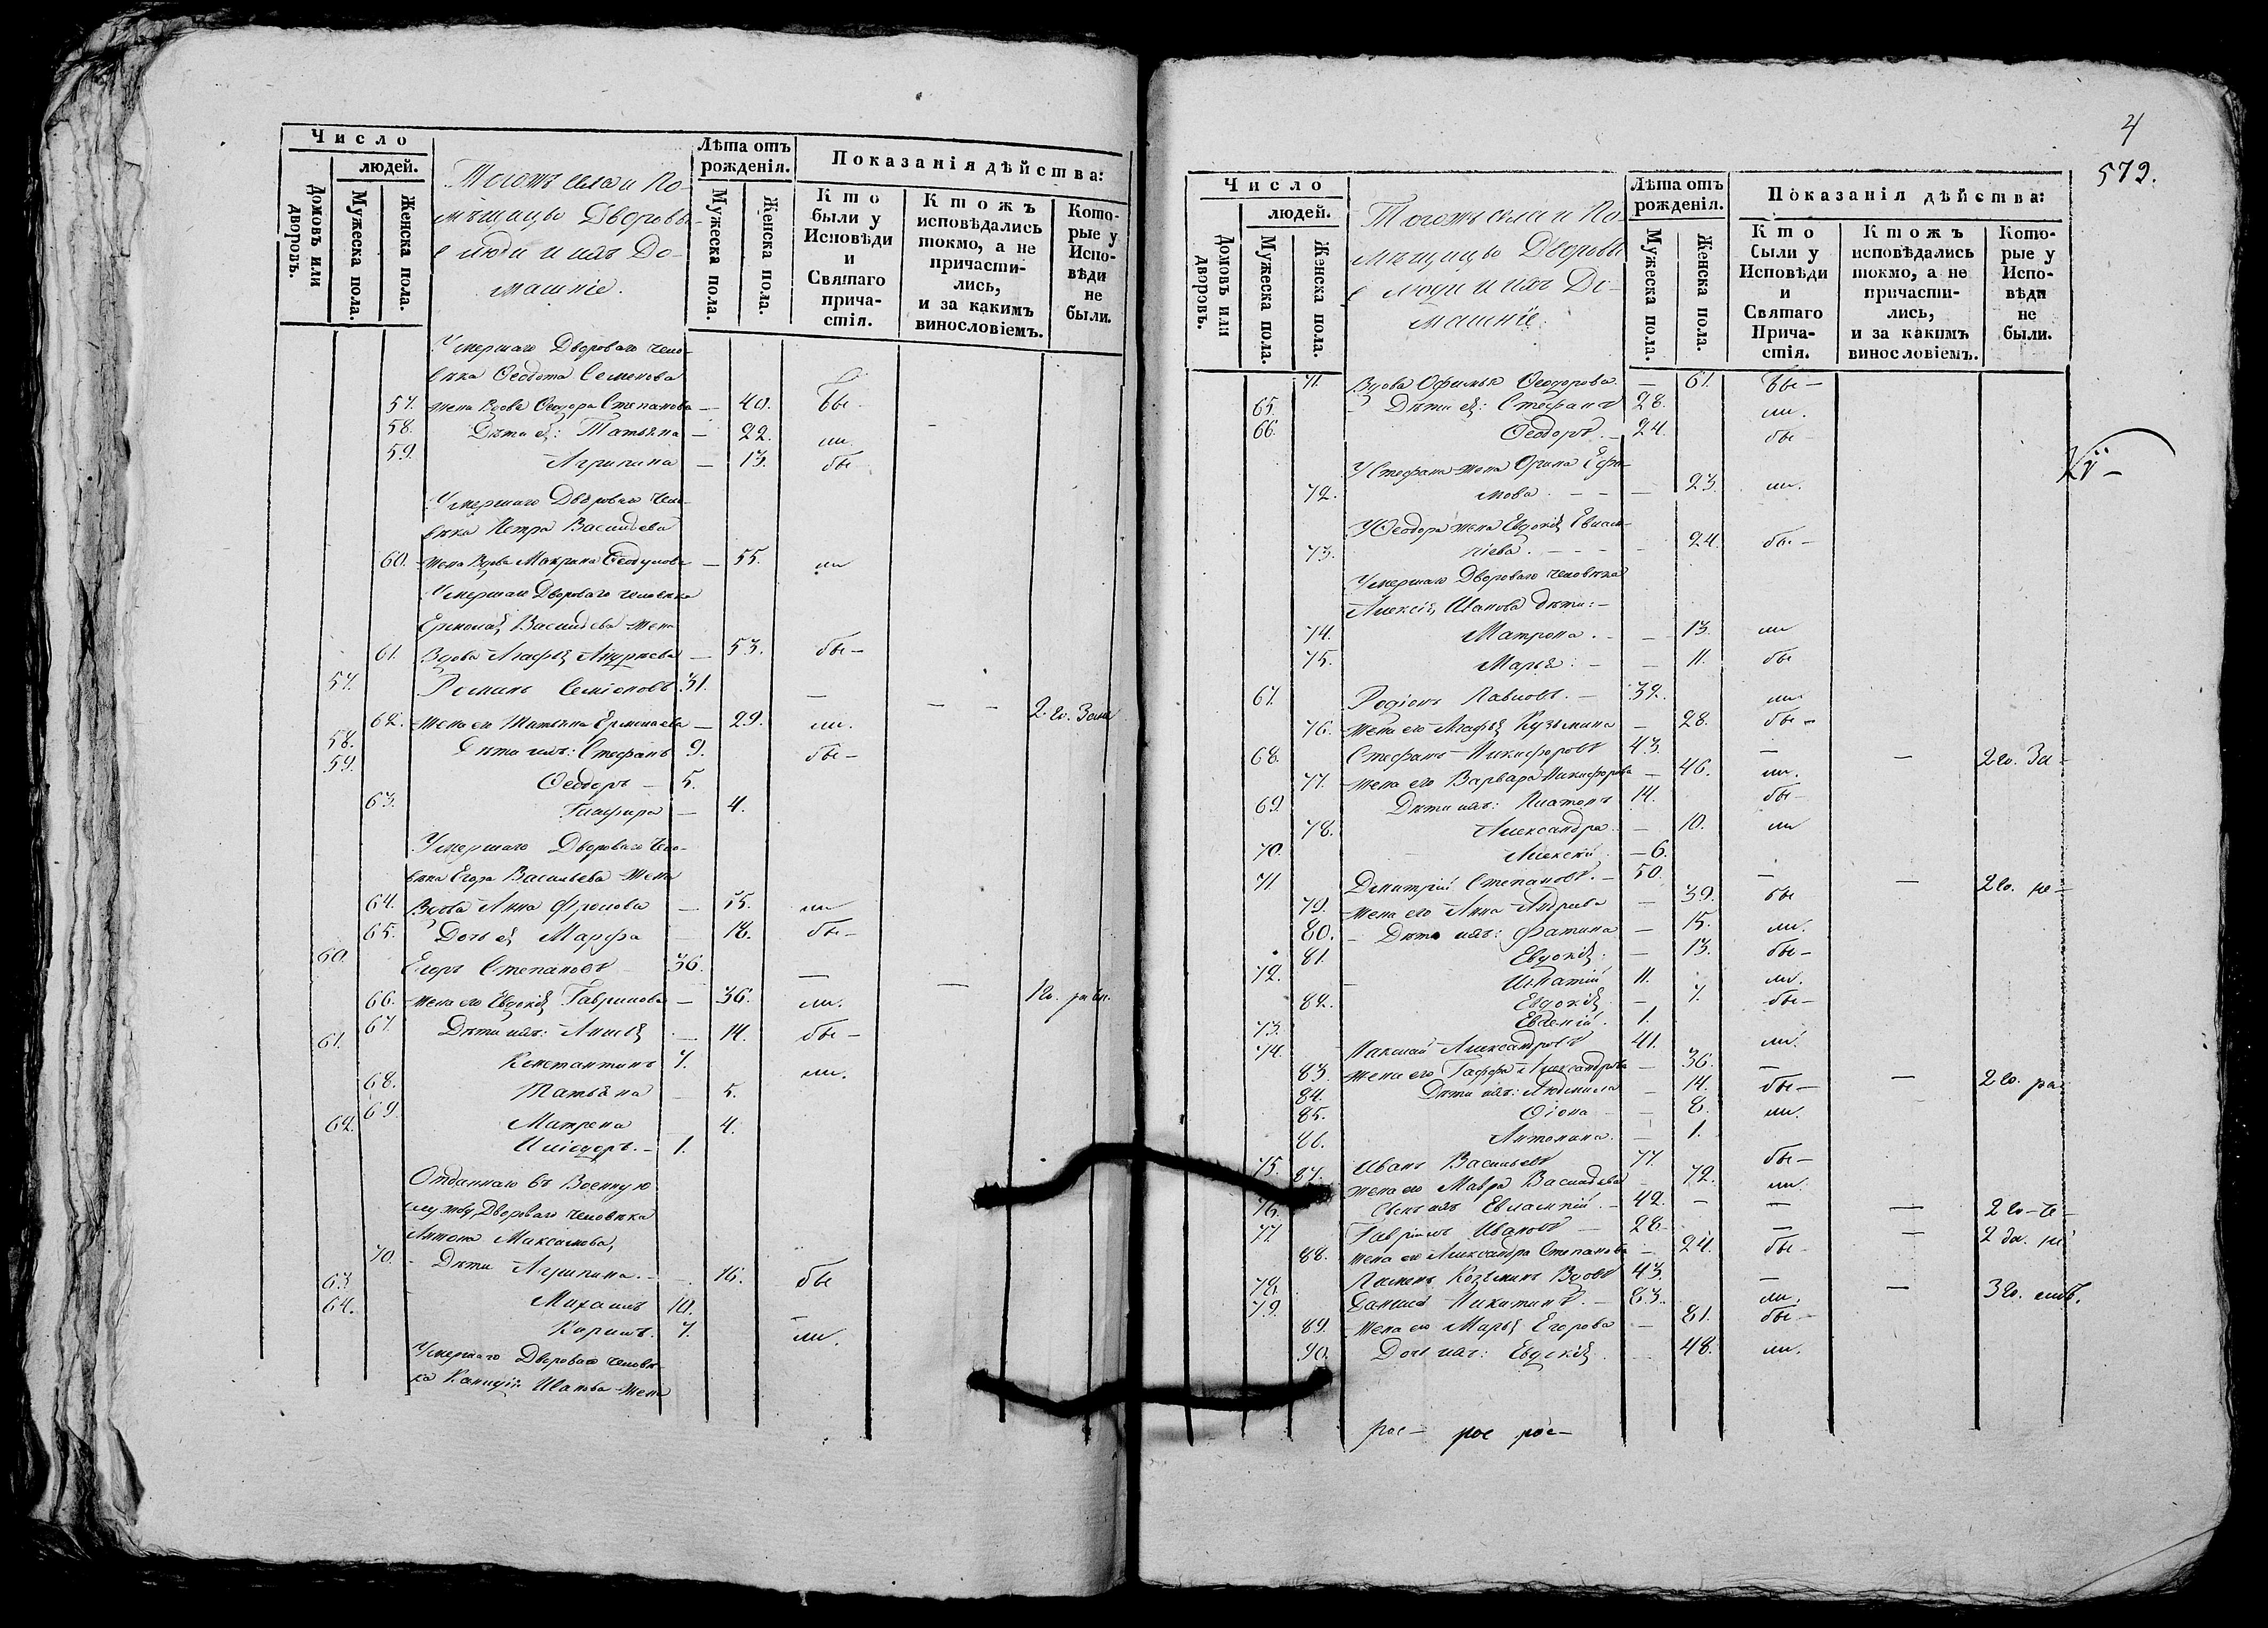 Число
людей.
Домовъ или дворовъ.
Мужеска пола.
Женска пола.
Тогожъ села и По-
мѣщицы Дворовы
е люди и ихъ До-
машніе.
Лѣта отъ рожденія.
Мужеска пола.
Женска пола.
Показанія дѣйства:
Кто были у Исповѣди и Святаго прича- стія.
Ктожъ исповѣдались токмо, а не причасти- лись, и за какимъ винословіемъ.
Кото- рые у Испо- вѣди не были.
Умершаго Двороваго чело-
вѣка Ѳеодота Семенова
57. жена Вдова Ѳедора Степанова — 40. бы-
58. Дѣти ея: Татьяна — 22. ли.
59. Агрипина — 13. бы
Умершаго Двороваго чело-
вѣка Петра Васильева
60. жена Вдова — 55. ли
Умершаго Двороваго человѣка
Ермолая Васильева жена
61. Вдова Агафья Андреева — 53. бы-
57. Семіоновъ 31. — — 2. го.
62. жена его Татьяна Ермолаева — 29. ли.
58. Дѣти ихъ: Стефанъ 9. бы-
59. Ѳеодоръ — 5.
63. Глафира — 4.
Умершаго Двороваго чело-
вѣка Егора Васильева жена
64. Вдова Анна Фролова — 55. ли
65. Дочь ея Марфа — 18. бы-
60. Егоръ Степановъ 36. — —
66. жена его Евдокія Гаврилова — 36. ли.
67. Дѣти ихъ: — 14. бы-
61. Константинъ 7. ли.
68. Татьяна — 5.
69. Матрена 4.
62. 1.
Отданнаго въ Военную
службу, Двороваго человѣка
Антона Максимова,
70. Дѣти Агрипина. — 16. бы
63. Михаилъ 10.
64. Кирилъ. 7. ли.
Умершаго Двороваго человѣ-
ка Иванова жена
4
579.
Число
людей.
Домовъ или дворовъ.
Мужеска пола.
Женска пола.
Тогожъ села и По-
мѣщицы Дворовы
е люди и ихъ До-
машніе.
Лѣта отъ рожденія.
Мужеска пола.
Женска пола.
Показанія дѣйства:
Кто были у Исповѣди и Святаго Прича- стія.
Ктожъ исповѣдались токмо, а не причасти- лись, и за какимъ винословіемъ.
Кото- рые у Испо- вѣди не были.
71. Вдова Ѳеодорова. — 61. бы-
65. Дѣти ея: Стефанъ 28. ли.
66. Ѳеодоръ. — 24. бы-
У Стефана жена Орина Ефи-
72. мова. — — — 23. ли.
У Ѳеодора жена Евдокія Евлам-
73. піева. — — — 24. бы-
Умершаго Двороваго человѣка
Алексія Иванова дѣти: —
74. Матрона. — — 13. ли
75. Марья: — — 11. бы
67. Родіонъ Павловъ. — 32. ли
76. жена его Агафья Кузьмина — 28. бы-
68. Стефанъ Никифоровъ 43. — — 2 го. За-
77. жена его Варвара Никифорова — 46. ли.
69. Дѣти ихъ: Платонъ 14. бы-
78. Александра. — 10. ли
70. Алексѣй. — 6.
71 Димитрій Степановъ. — 50. — — 2 го. не-
79. жена его Анна Андреева — 39. бы
80. Дѣти ихъ: — 15. ли.
81. Евдокія. — 13. бы-
72. Игнатій 11. ли.
82. Евдокія — 7. бы-
73. Евгеній. 1.
74. Александровъ 41. ли.
83. жена его Александрова — 36. —
84. Дѣти ихъ: Людмила — 14. бы- — 2 го. ра
85. — 8. ли.
86. Антонина. — 1.
75. Иванъ Васильевъ 77. бы-
87. жена его Мавра Васильева — 72. ли.
76. Сынъ ихъ Евлампій. — 42. — — — 2 го-
77. Гаврилъ Ивановъ — 28. — —
88. жена его Александра Степанова — 24. бы-
78. Козьминъ Вдовъ 43. — — 3 го.
79. Данила Никитинъ. — 83. ли.
89. жена его Марья Егорова — 81. бы-
90. Дочь ихъ: Евдокія. — 48. ли.